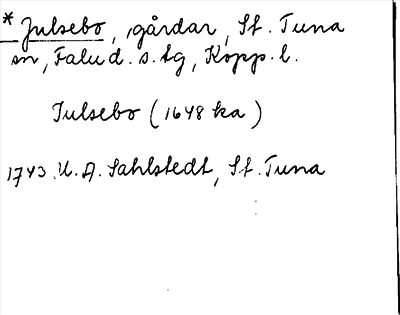 * Julsebo, gårdar, St. Tuna
sn, Falu d. s. tg, Kopp. l.
Julsebo (1648 ka)
1743 U. A. Sahlstedt, St. Tuna